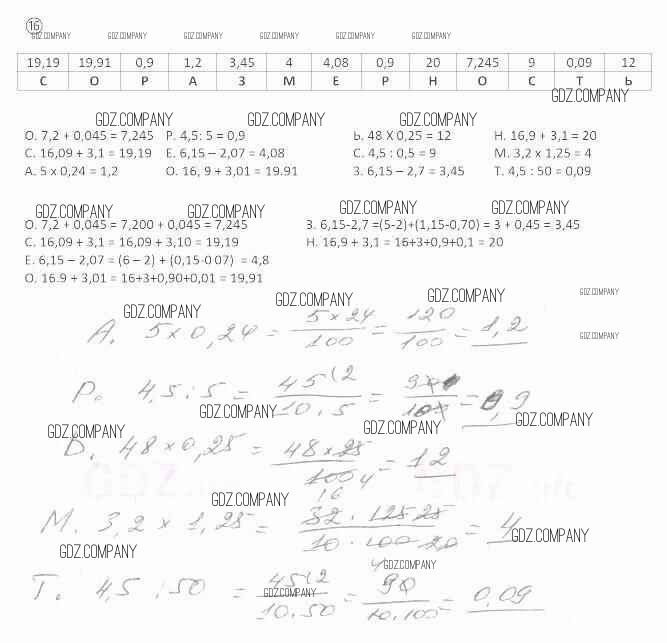 16
GDZ.COMPANY GDZ.COMPANY GDZ.COMPANY GDZ.COMPANY GDZ.COMPANY
19,19 19,91 0,9 1,2 3,45 4 4,08 0,9 20 7,245 9 0,09 12
С О Р А З М Е Р Н О С Т Ь
GDZ.COMPANY
GDZ.COMPANY GDZ.COMPANY GDZ.COMPANY
О. 7,2 + 0,045 = 7,245 Р. 4,5: 5 = 0,9 Ь. 48 X 0,25 = 12 Н. 16,9 + 3,1 = 20
С. 16,09 + 3,1 = 19,19 Е. 6,15 – 2,07 = 4,08 С. 4,5 : 0,5 = 9 М. 3,2 x 1,25 = 4
А. 5 x 0,24 = 1,2 О. 16, 9 + 3,01 = 19.91 З. 6,15 – 2,7 = 3,45 Т. 4,5 : 50 = 0,09
GDZ.COMPANY GDZ.COMPANY GDZ.COMPANY GDZ.COMPANY
О. 7,2 + 0,045 = 7,200 + 0,045 = 7,245 З. 6,15-2,7 =(5-2)+(1,15-0,70) = 3 + 0,45 = 3,45
С. 16,09 + 3,1 = 16,09 + 3,10 = 19,19 Н. 16,9 + 3,1 = 16+3+0,9+0,1 = 20
Е. 6,15 – 2,07 = (6 – 2) + (0,15-0 07) = 4,8
О. 16.9 + 3,01 = 16+3+0,90+0,01 = 19,91
GDZ.COMPANY GDZ.COMPANY GDZ.COMPANY GDZ.COMPANY
А. 5 x 0,24 = 5 x 24 / 100 = 120 / 100 = 1,2
GDZ.COMPANY
Р. 4,5 : 5 = 45 (2 / 10 . 5 = 90 / 100 = 0,9
GDZ.COMPANY GDZ.COMPANY GDZ.COMPANY GDZ.COMPANY
48 x 0,25 = 48 x 25 / 100 4 = 12
GDZ.COMPANY
М. 3,2 x 1,25 = 16 32 . 125 25 / 10 . 100 20 = 4
GDZ.COMPANY GDZ.COMPANY
GDZ.COMPANY
Т. 4,5 : 50 = 45 (2 / 10.50 = 90 / 10.100 = 0,09
GDZ.COMPANY